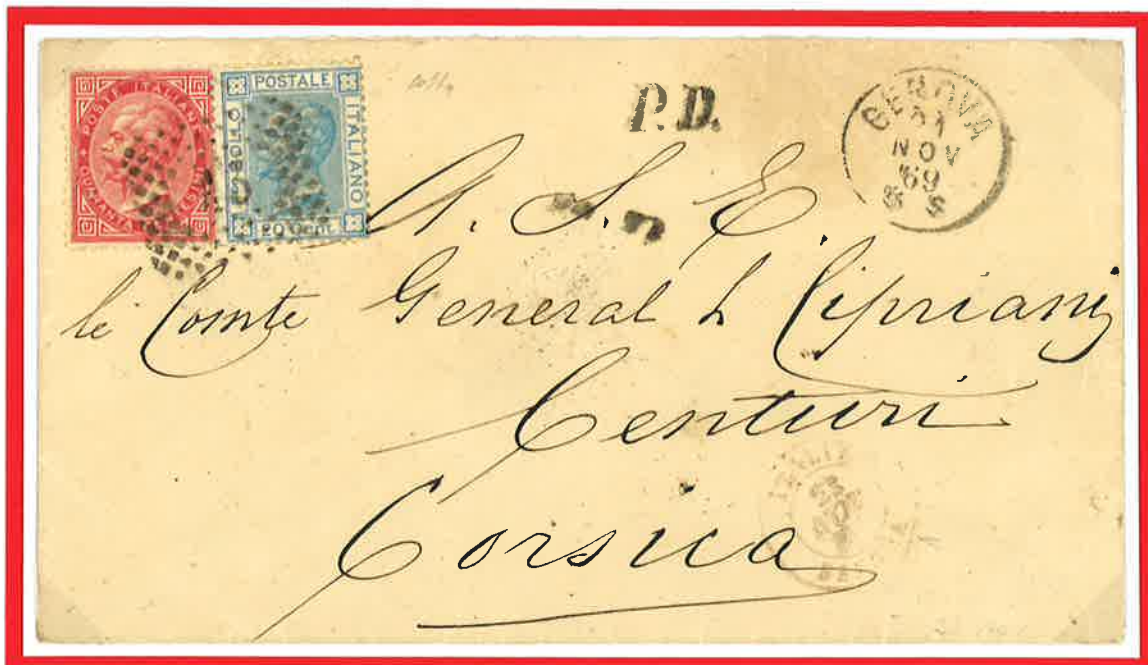 POSTE ITALIANE
QUARANTA CENTESIMI
POSTALE
ITALIANO
20 Cent.
P.D.
GENOVA
21
NOV
69
A. S. E.
le Comte General L Cipriani
Centuri
Corsica